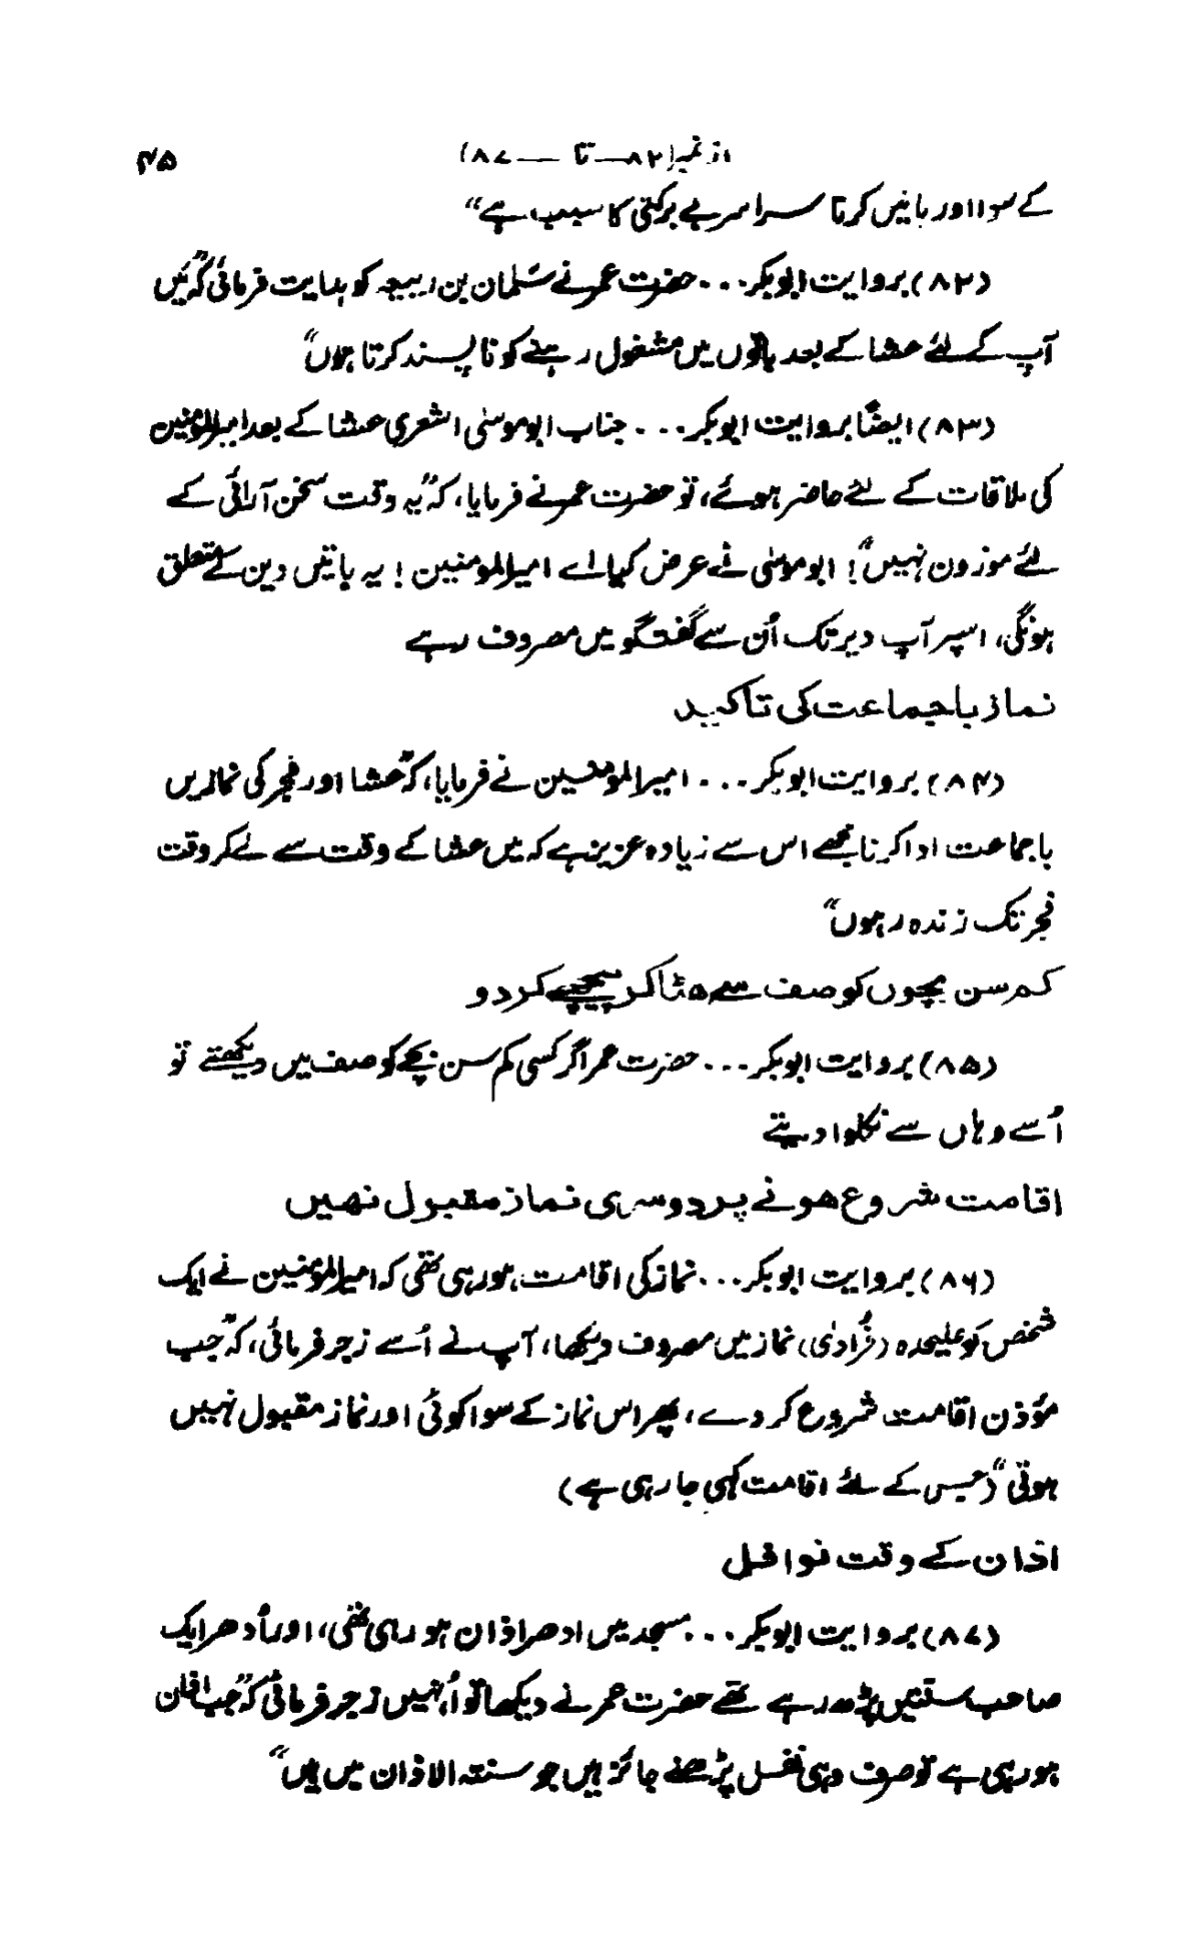 از نمبر (۸۲ــ تا ــ۸۷) ۴۵
کے سوا اور باتیں کرنا سراسر بے برکتی کا سبب ہے“
(۸۲) بروایت ابوبکر... حضرت عمر نے سَلمان بن ربیعہ کو ہدایت فرمائی کہ”میں
آپ کے لئے عشا کے بعد باتوں میں مشغول رہنے کو نا پسند کرتا ہوں“
(۸۳) ایضًا بروایت ابوبکر... جناب ابو موسٰی اشعری عشا کے بعد امیرالمؤمنین
کی ملاقات کے لئے حاضر ہوئے، تو حضرت عمر نے فرمایا، کہ”یہ وقت سخن آرائی کے
لئے موزون نہیں“! ابو موسٰی نے عرض کیا اے امیرالمومنین! یہ باتیں دین کے متعلق
ہونگی، اسپر آپ دیر تک اُن سے گفتگو میں مصروف رہے
نماز باجماعت کی تاکید
(۸۴) بروایت ابوبکر... امیرالمومنین نے فرمایا، کہ”عشا اور فجر کی نمازیں
باجماعت ادا کرنا مجھے اس سے زیادہ عزیز ہے کہ میں عشا کے وقت سے لےکر وقت
فجر تک زندہ رہوں“
کم سن بچوں کو صف سے ھٹا کر پیچھے کر دو
(۸۵) بروایت ابوبکر... حضرت عمر اگر کسی کم سن بچے کو صف میں دیکھتے تو
اُسے وہاں سے نکلوا دیتے
اقامت شروع ھونے پر دوسری نماز مقبول نھیں
(۸۶) بروایت ابوبکر... نماز کی اقامت ہو رہی تھی کہ امیرالمؤمنین نے ایک
شخص کو علیحدہ (فُرادٰی) نماز میں مصروف دیکھا، آپ نے اُسے زجر فرمائی، کہ”جب
مؤذن اقامت شروع کر دے، پھر اس نماز کے سوا کوئی اور نماز مقبول نہیں
ہوتی“ (جس کے لئے اقامت کہی جا رہی ہے)
اذان کے وقت نوافل
(۸۷) بروایت ابوبکر... مسجد میں ادھر اذان ہو رہی تھی، اور اُدھر ایک
صاحب سنتیں پڑھ رہے تھے حضرت عمر نے دیکھا تو اُنہیں زجر فرمائی کہ”جب اذان
ہو رہی ہے تو صرف وہی نفل پڑھنے جائز ہیں جو سنتہ الاذان میں ہیں“